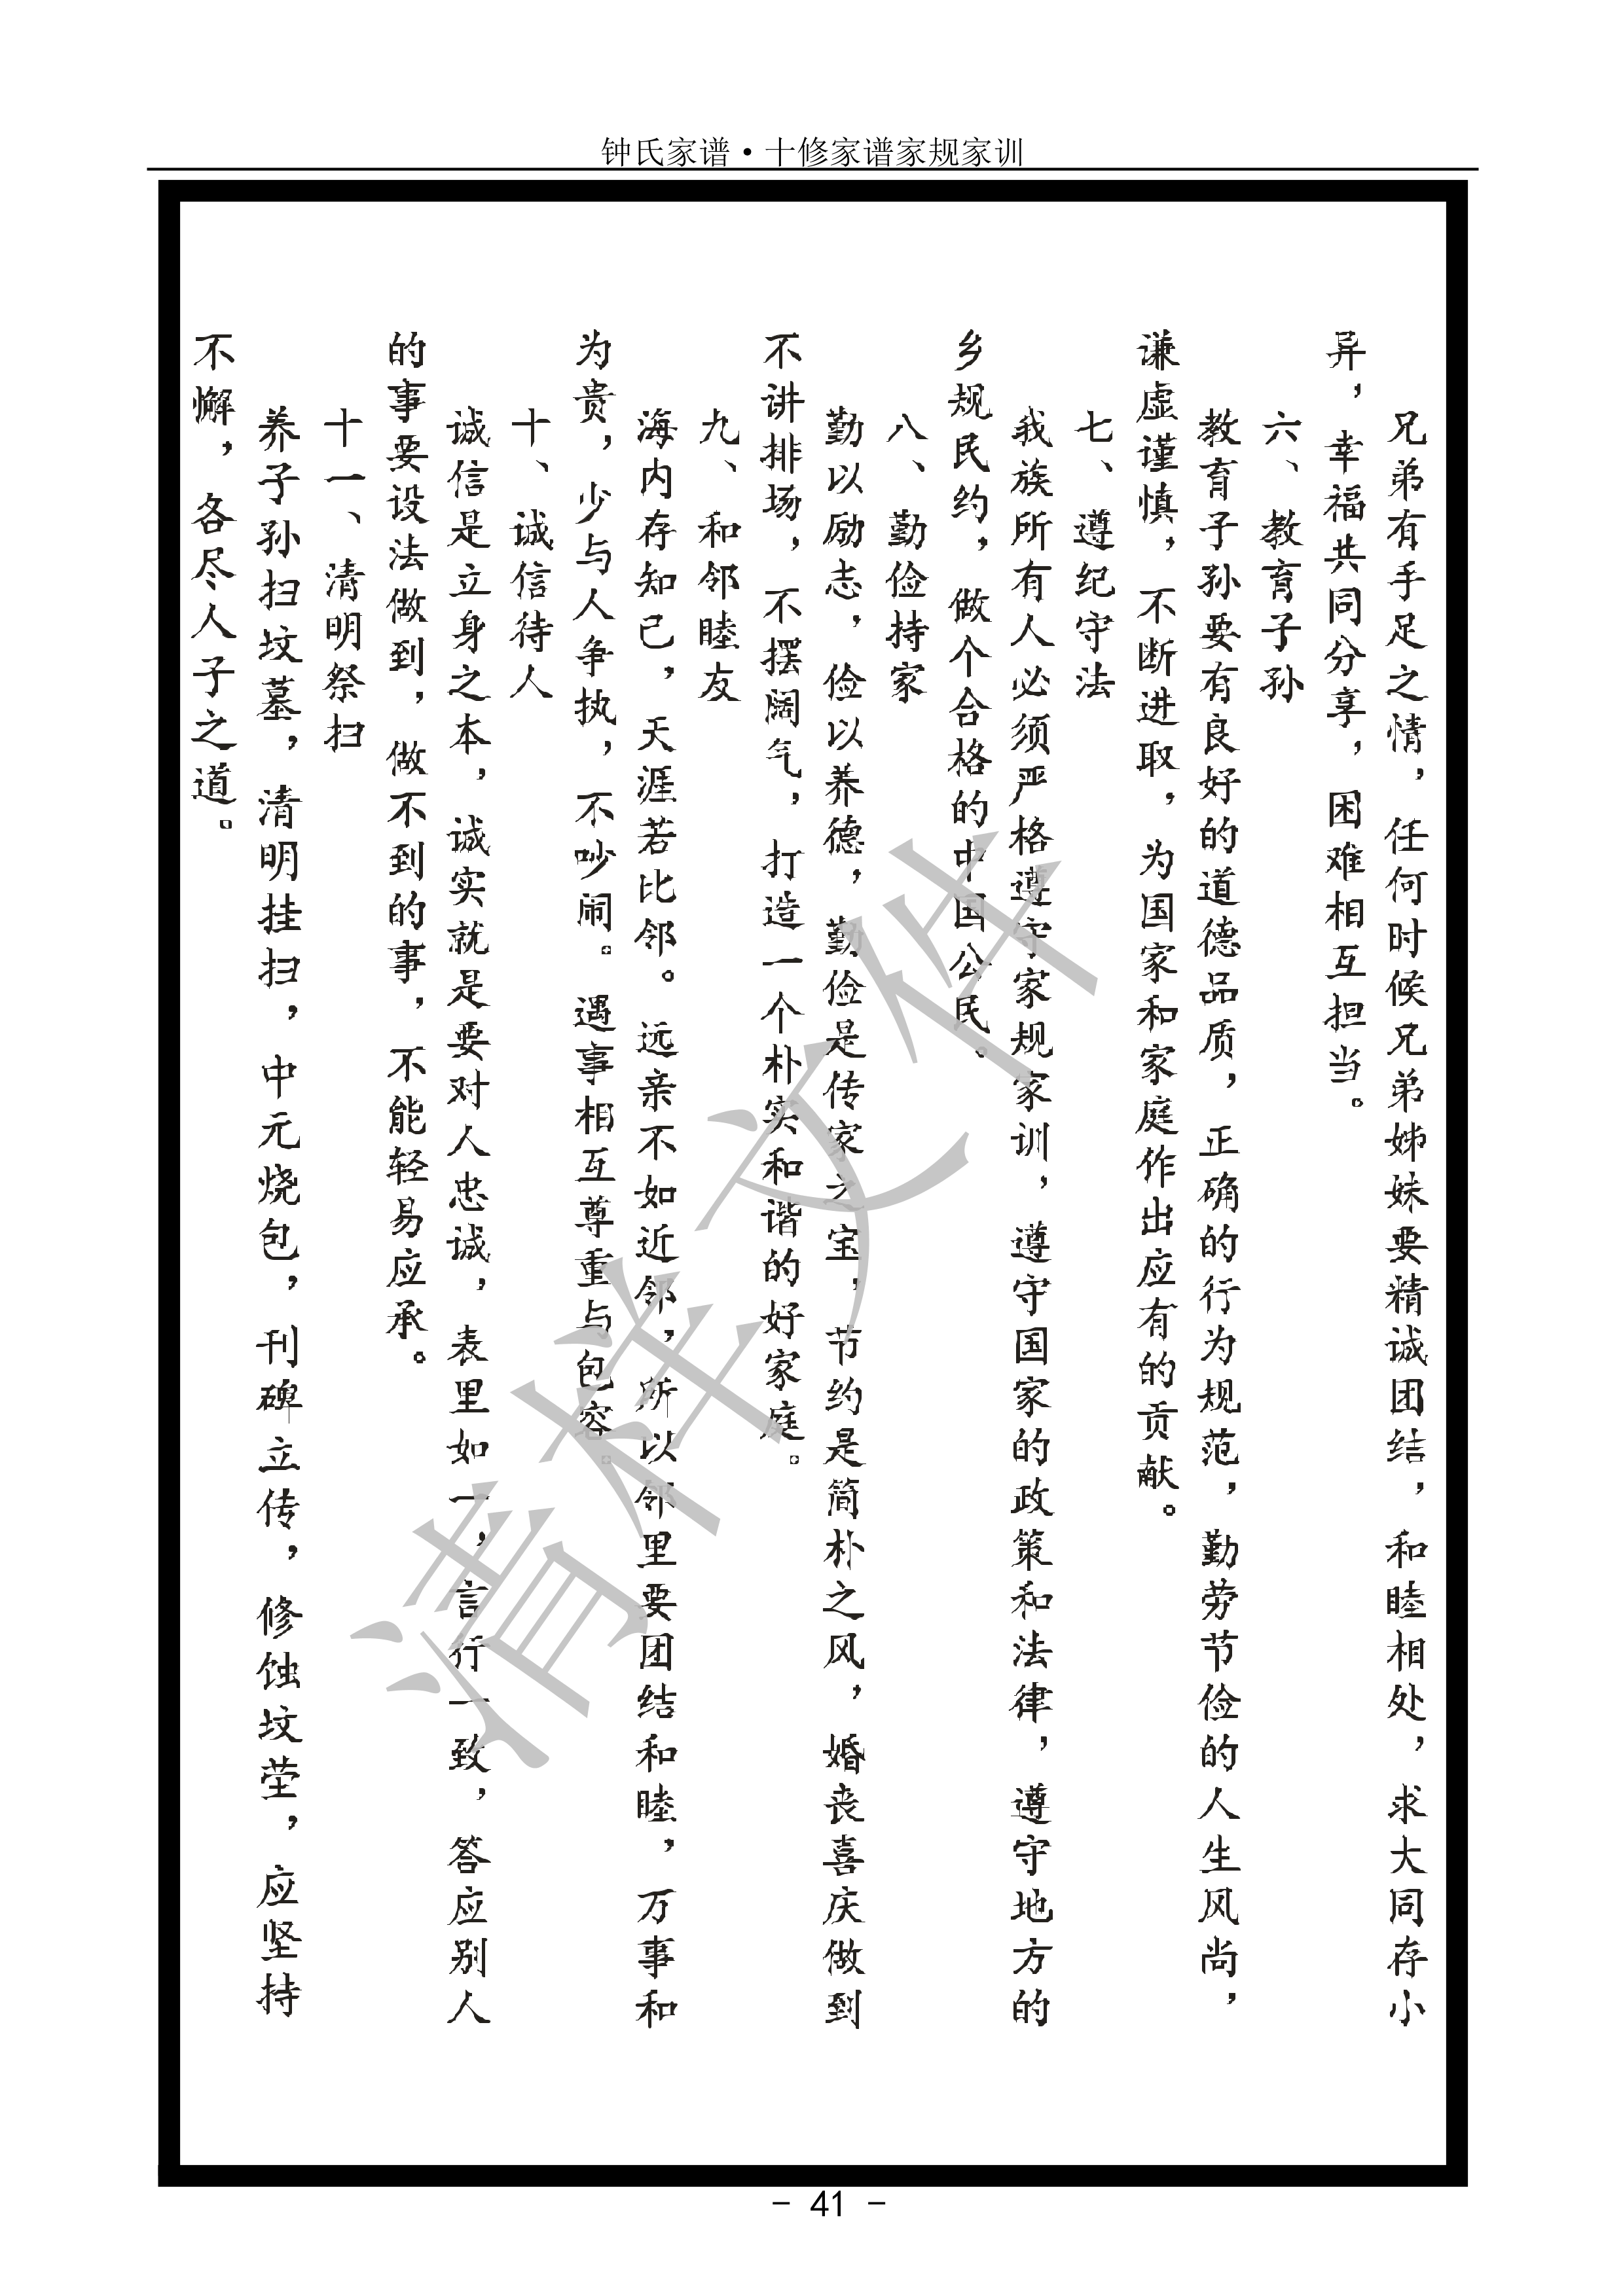 钟氏家谱·十修家谱家规家训
兄弟有手足之情，任何时候兄弟姊妹要精诚团结，和睦相处，求大同存小
异，幸福共同分享，困难相互担当。
六、教育子孙
教育子孙要有良好的道德品质，正确的行为规范，勤劳节俭的人生风尚，
谦虚谨慎，不断进取，为国家和家庭作出应有的贡献。
七、遵纪守法
我族所有人必须严格遵守家规家训，遵守国家的政策和法律，遵守地方的
乡规民约，做个合格的中国公民。
八、勤俭持家
勤以励志，俭以养德，勤俭是传家之宝，节约是简朴之风，婚丧喜庆做到
不讲排场，不摆阔气，打造一个朴实和谐的好家庭。
九、和邻睦友
海内存知己，天涯若比邻。远亲不如近邻，所以邻里要团结和睦，万事和
为贵，少与人争执，不吵闹。遇事相互尊重与包容。
十、诚信待人
诚信是立身之本，诚实就是要对人忠诚，表里如一，言行一致，答应别人
的事要设法做到，做不到的事，不能轻易应承。
十一、清明祭扫
养子孙扫坟墓，清明挂扫，中元烧包，刊碑立传，修蚀坟茔，应坚持
不懈，各尽人子之道。
清样文件
- 41 -